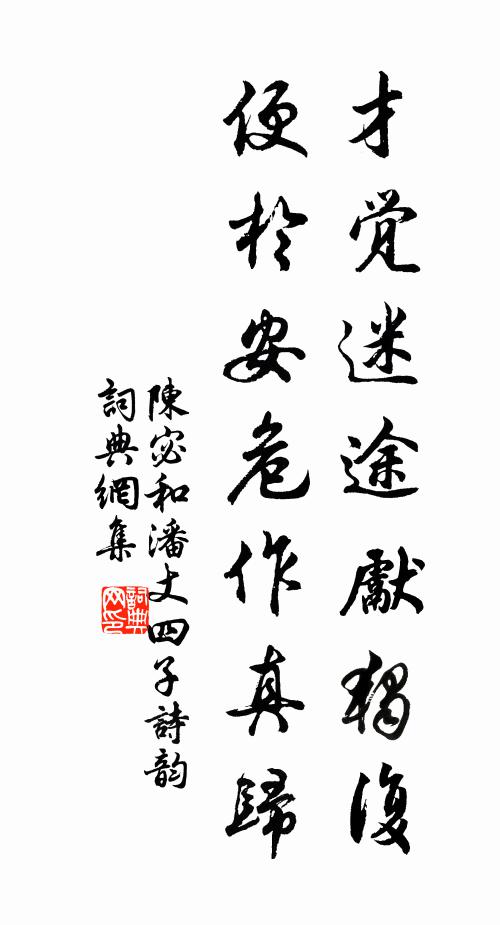 才覚迷途獨復
便於安危作真歸
陳宓和潘丈四子詩韵
詞典網集
詞典网印